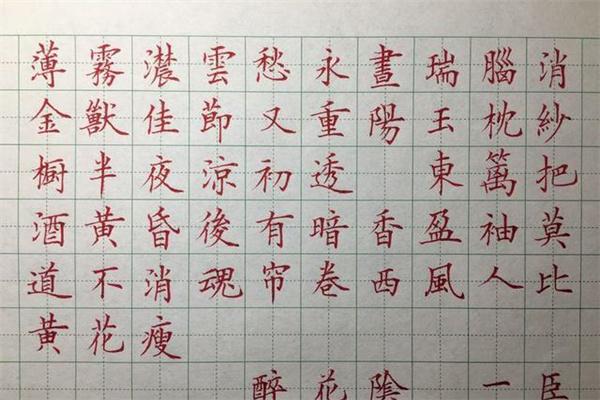 薄霧濃雲愁永晝瑞腦消
金獸佳節又重陽玉枕紗
橱半夜涼初透 東篱把
酒黃昏後有暗香盈袖莫
道不消魂帘卷西風人比
黃花瘦
醉花陰 一臣